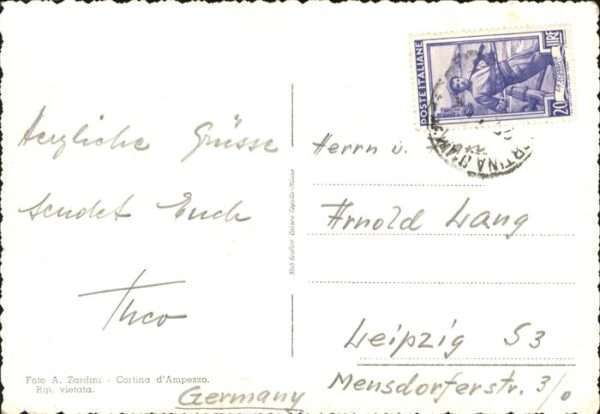 Herzliche Grüsse
sendet Euch
Theo
Foto A. Zardini - Cortina d'Ampezzo.
Rip. vietata.
POSTE ITALIANE
20 LIRE
Herrn u.
Arnold Lang
Leipzig S3
Mensdorferstr. 3/0
Germany